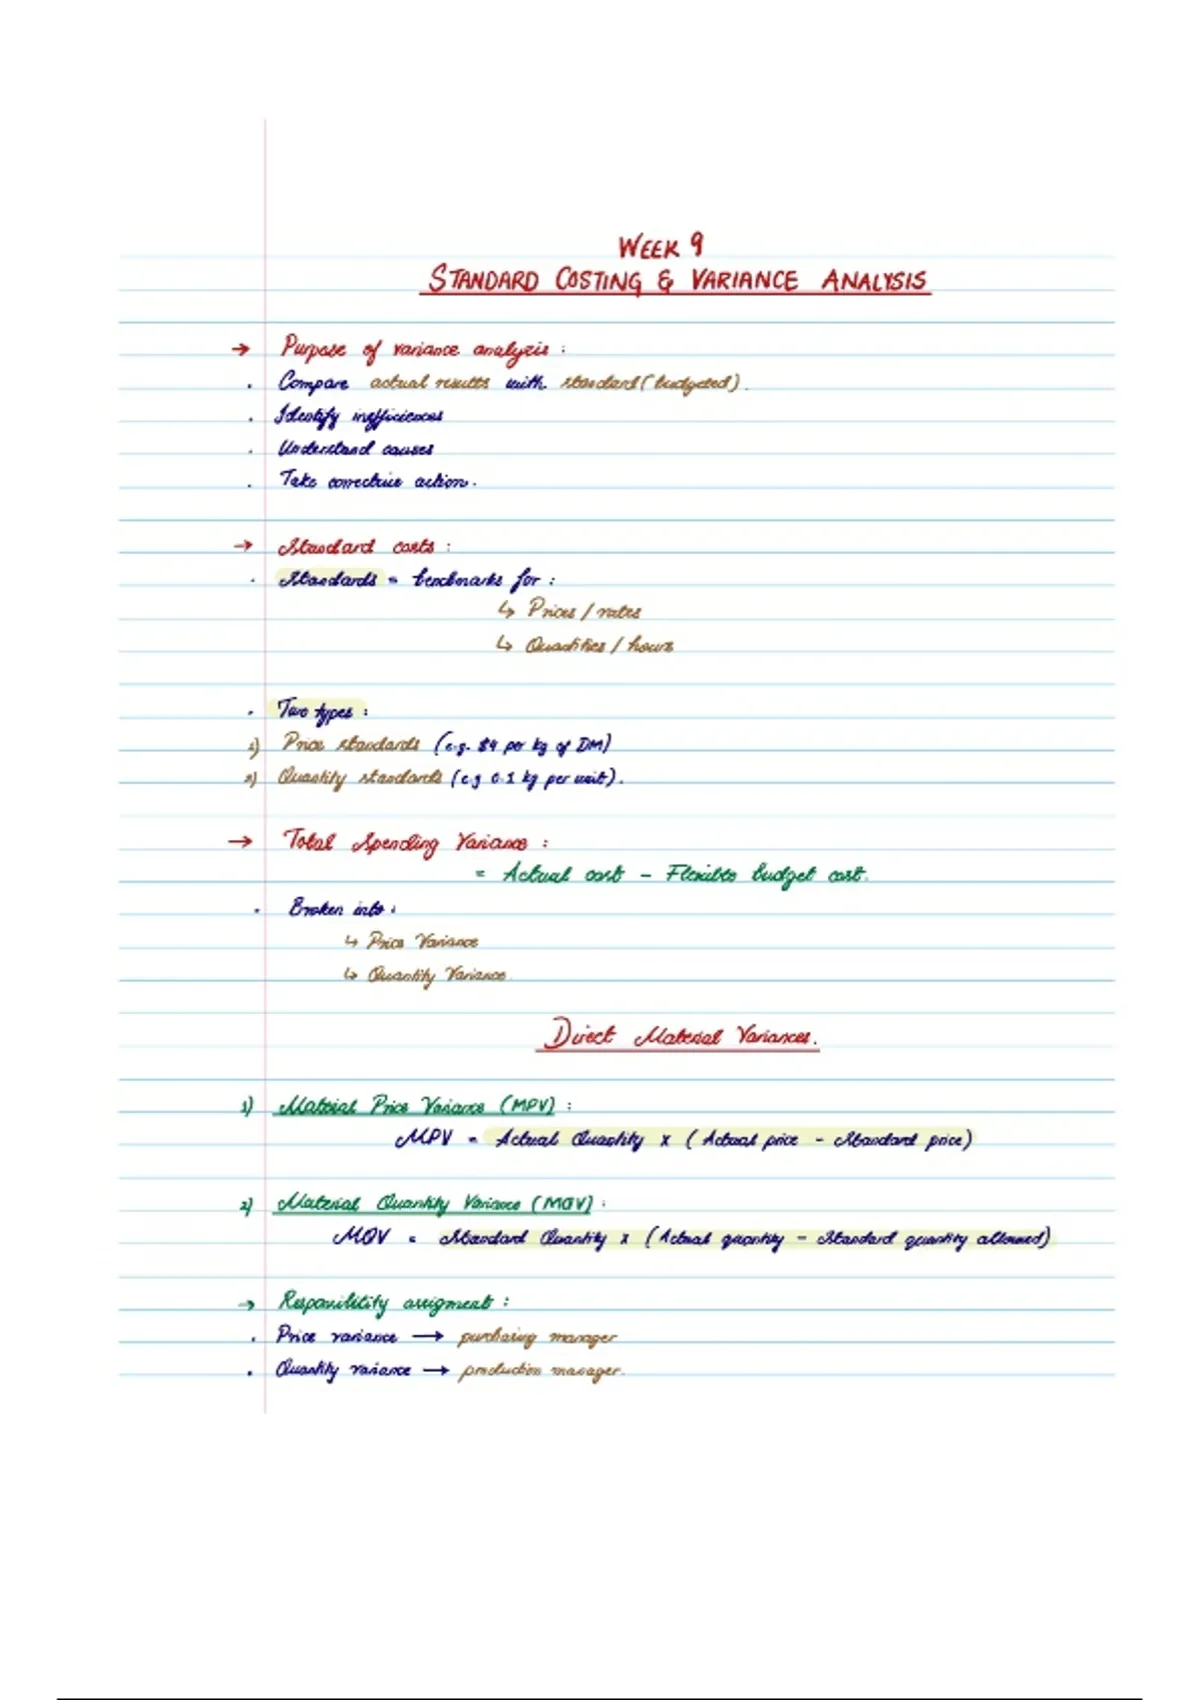 WEEK 9
STANDARD COSTING & VARIANCE ANALYSIS
→ Purpose of variance analysis :
. Compare actual results with standard (budgeted).
. Identify inefficiences
. Understand causes
. Take corrective action.
→ Standard costs :
. Standards = benchmarks for :
↳ Prices / rates
↳ Quantities / hours
. Two types :
1) Price standards (e.g. $4 per kg of DM)
2) Quantity standards (e.g 0.1 kg per unit).
→ Total Spending Variance :
= Actual cost - Flexible budget cost.
. Broken into :
↳ Price Variance
↳ Quantity Variance
Direct Material Variances.
1) Material Price Variance (MPV) :
MPV = Actual Quantity x (Actual price - Standard price)
2) Material Quantity Variance (MQV) :
MQV = Standard Quantity x (Actual quantity - Standard quantity allowed)
→ Responsibility assigment :
. Price variance → purchasing manager
. Quantity variance → production manager.